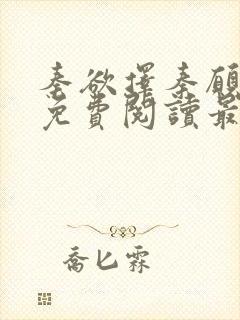 秦欲擇秦願
免費閱讀最
喬匕霖